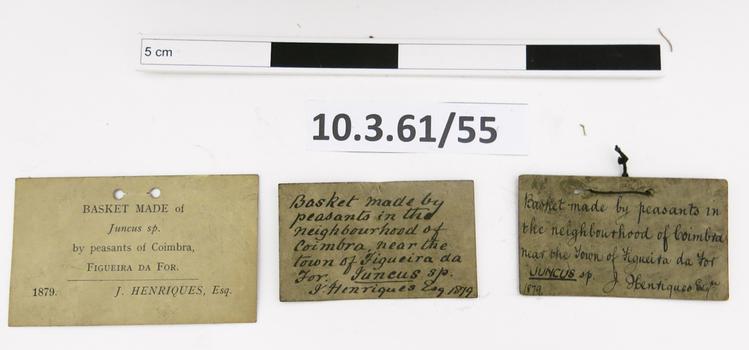 5 cm
10.3.61/55
BASKET MADE of
Juncus sp.
by peasants of Coimbra,
FIGUEIRA DA FOR.
1879. J. HENRIQUES, Esq.
Basket made by
peasants in the
neighbourhood of
Coimbra, near the
town of Figueira da
For. Juncus sp.
J. Henriques Esq 1879
Basket made by peasants in
the neighbourhood of Coimbra
near the Town of Figueira da For
JUNCUS sp. J Henriques Esqre
1879